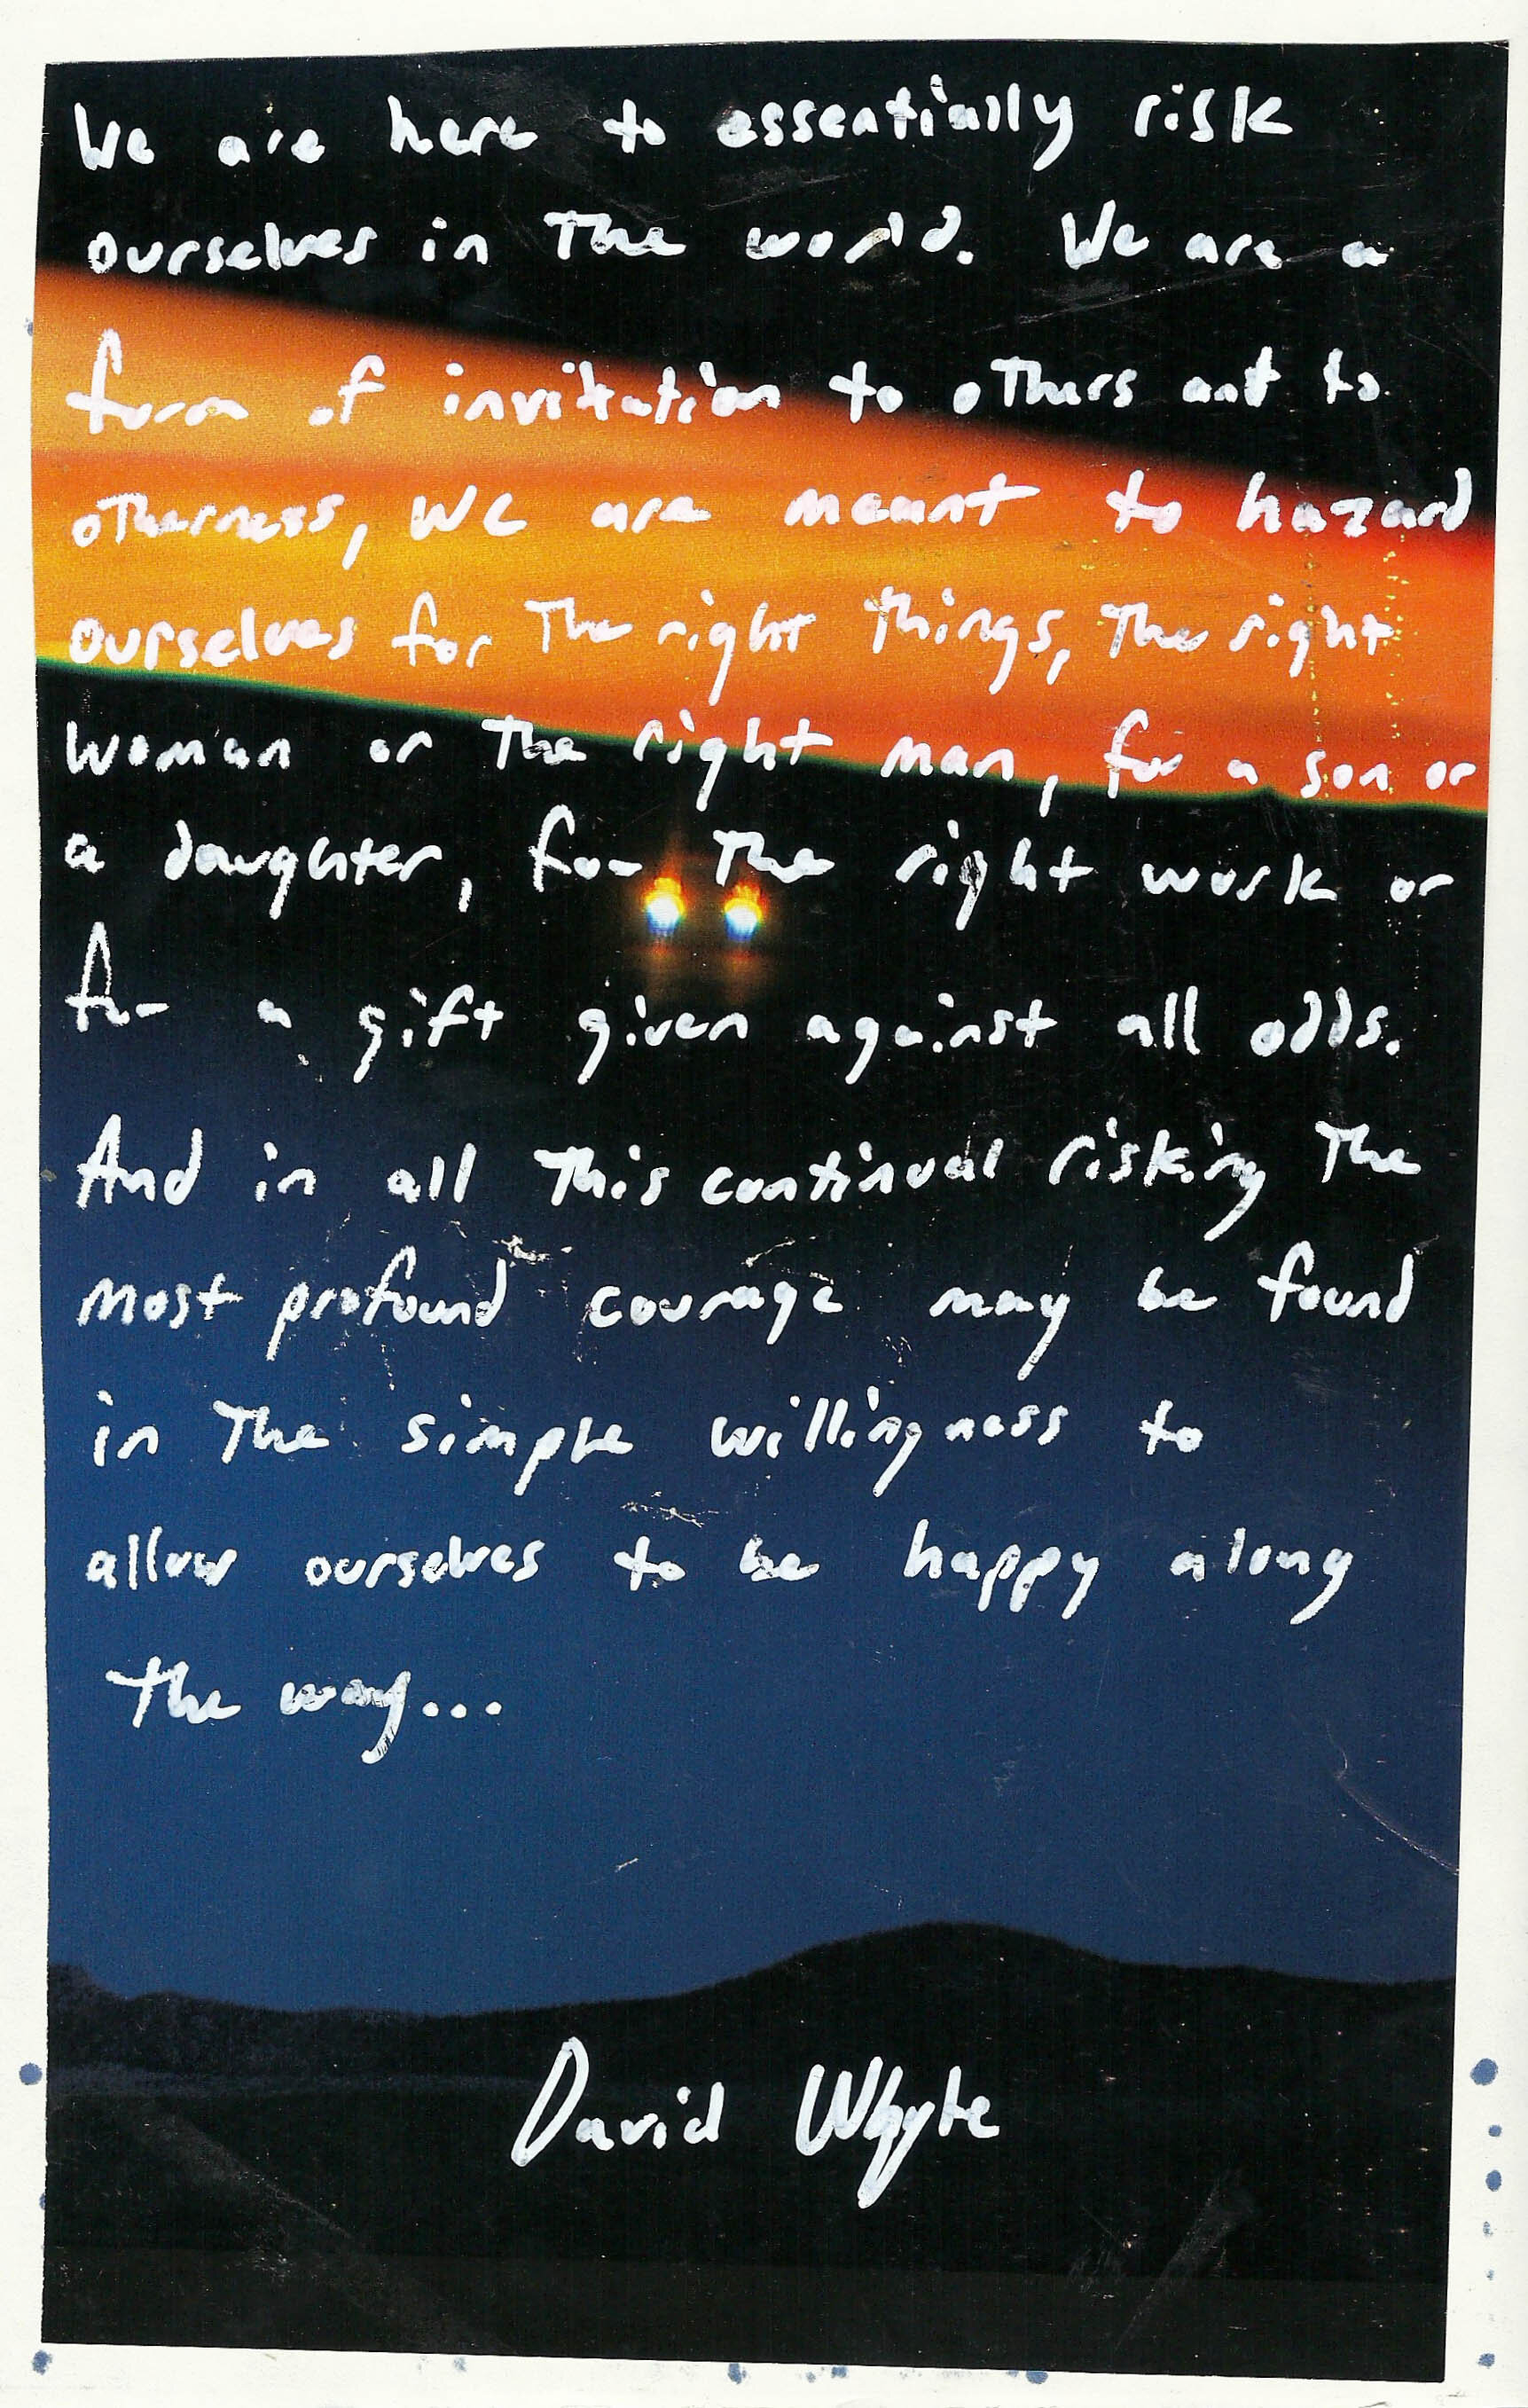 We are here to essentially risk
ourselves in The world. We are a
form of invitation to others and to
otherness, we are meant to hazard
ourselves for The right things, The right
woman or The right man, for a son or
a daughter, for The right work or
for a gift given against all odds.
And in all This continual risking The
most profound courage may be found
in The simple willingness to
allow ourselves to be happy along
the way...
David Whyte